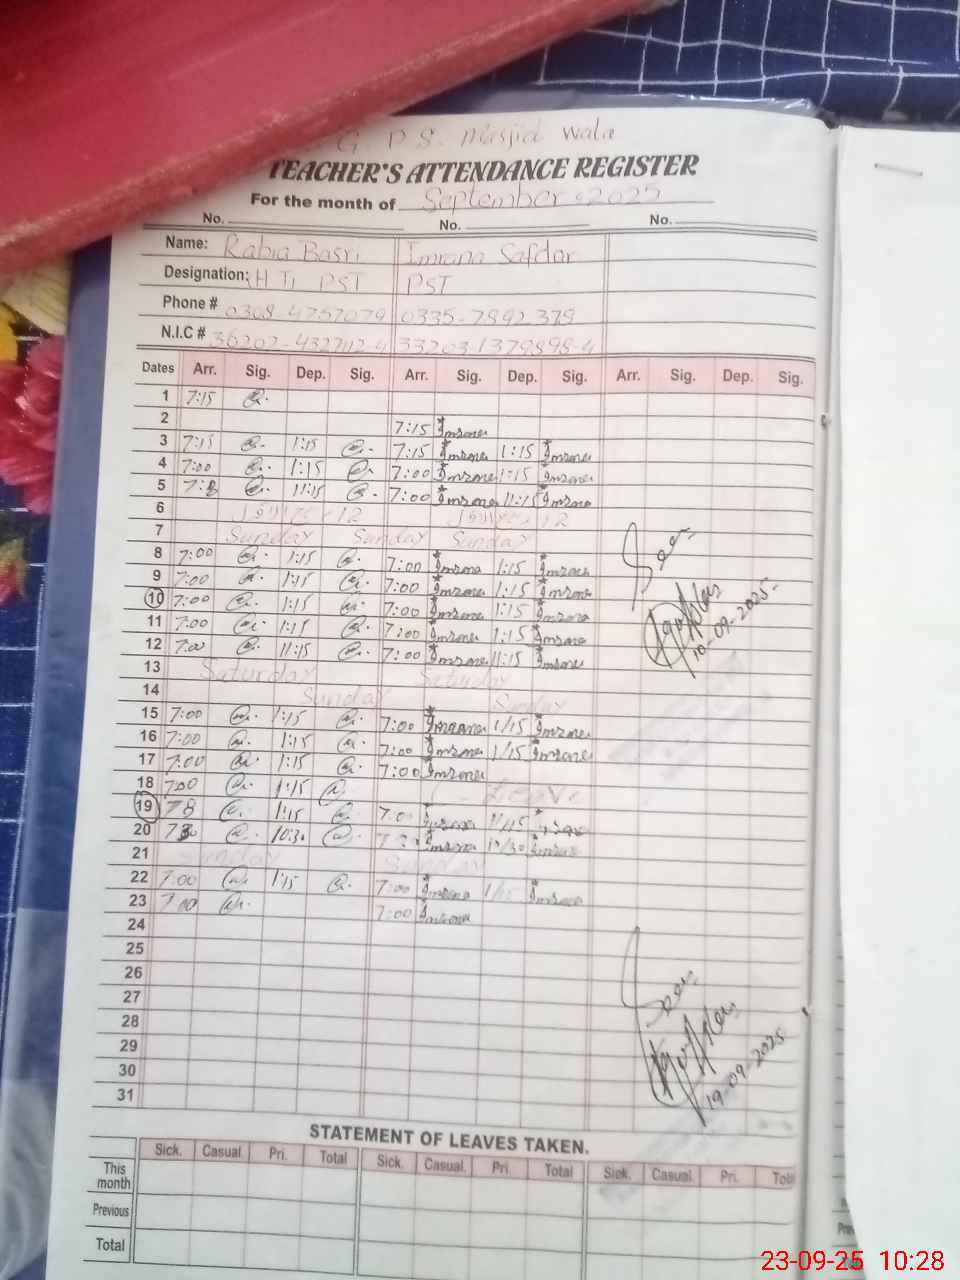 G. P. S. Masjid Wala
TEACHER'S ATTENDANCE REGISTER
For the month of September 2025
No. No. No.
Name: Rabia Basri Imrana Safdar
Designation: H T, PST PST
Phone # 0308-4757079 0335-7892379
N.I.C # 36202-4327112-4 33203-1379898-4
Dates Arr. Sig. Dep. Sig. Arr. Sig. Dep. Sig. Arr. Sig. Dep. Sig.
1 7:15
2 7:15 Imrana
3 7:15 1:15 7:15 Imrana 1:15 Imrana
4 7:00 1:15 7:00 Imrana 1:15 Imrana
5 11:15 7:00 Imrana 11:15 Imrana
6 12 12
7 Sunday Sunday Sunday
8 7:00 1:15 7:00 Imrana 1:15 Imrana
9 7:00 1:15 7:00 Imrana 1:15 Imrana
10 7:00 1:15 7:00 Imrana 1:15 Imrana
11 7:00 1:15 7:00 Imrana 1:15 Imrana
12 7:00 11:15 7:00 Imrana 11:15 Imrana
13 Saturday Saturday
14 Sunday Sunday
15 7:00 1:15 7:00 Imrana 1/15 Imrana
16 7:00 1:15 7:00 Imrana 1/15 Imrana
17 7:00 1:15 7:00 Imrana
18 7:00 1:15 Leave
19 1:15 7:00 Imrana 11/15
20 10:30 Imrana
21 Sunday Sunday
22 7:00 1:15 7:00 Imrana 1/15 Imrana
23 7:00 7:00 Imrana
24
25
26
27
28
29
30
31
Seen
10-09-2025
Seen
19-09-2025
STATEMENT OF LEAVES TAKEN.
Sick. Casual. Pri. Total Sick. Casual. Pri. Total Sick. Casual. Pri.
This month
Previous
Total
23-09-25 10:28